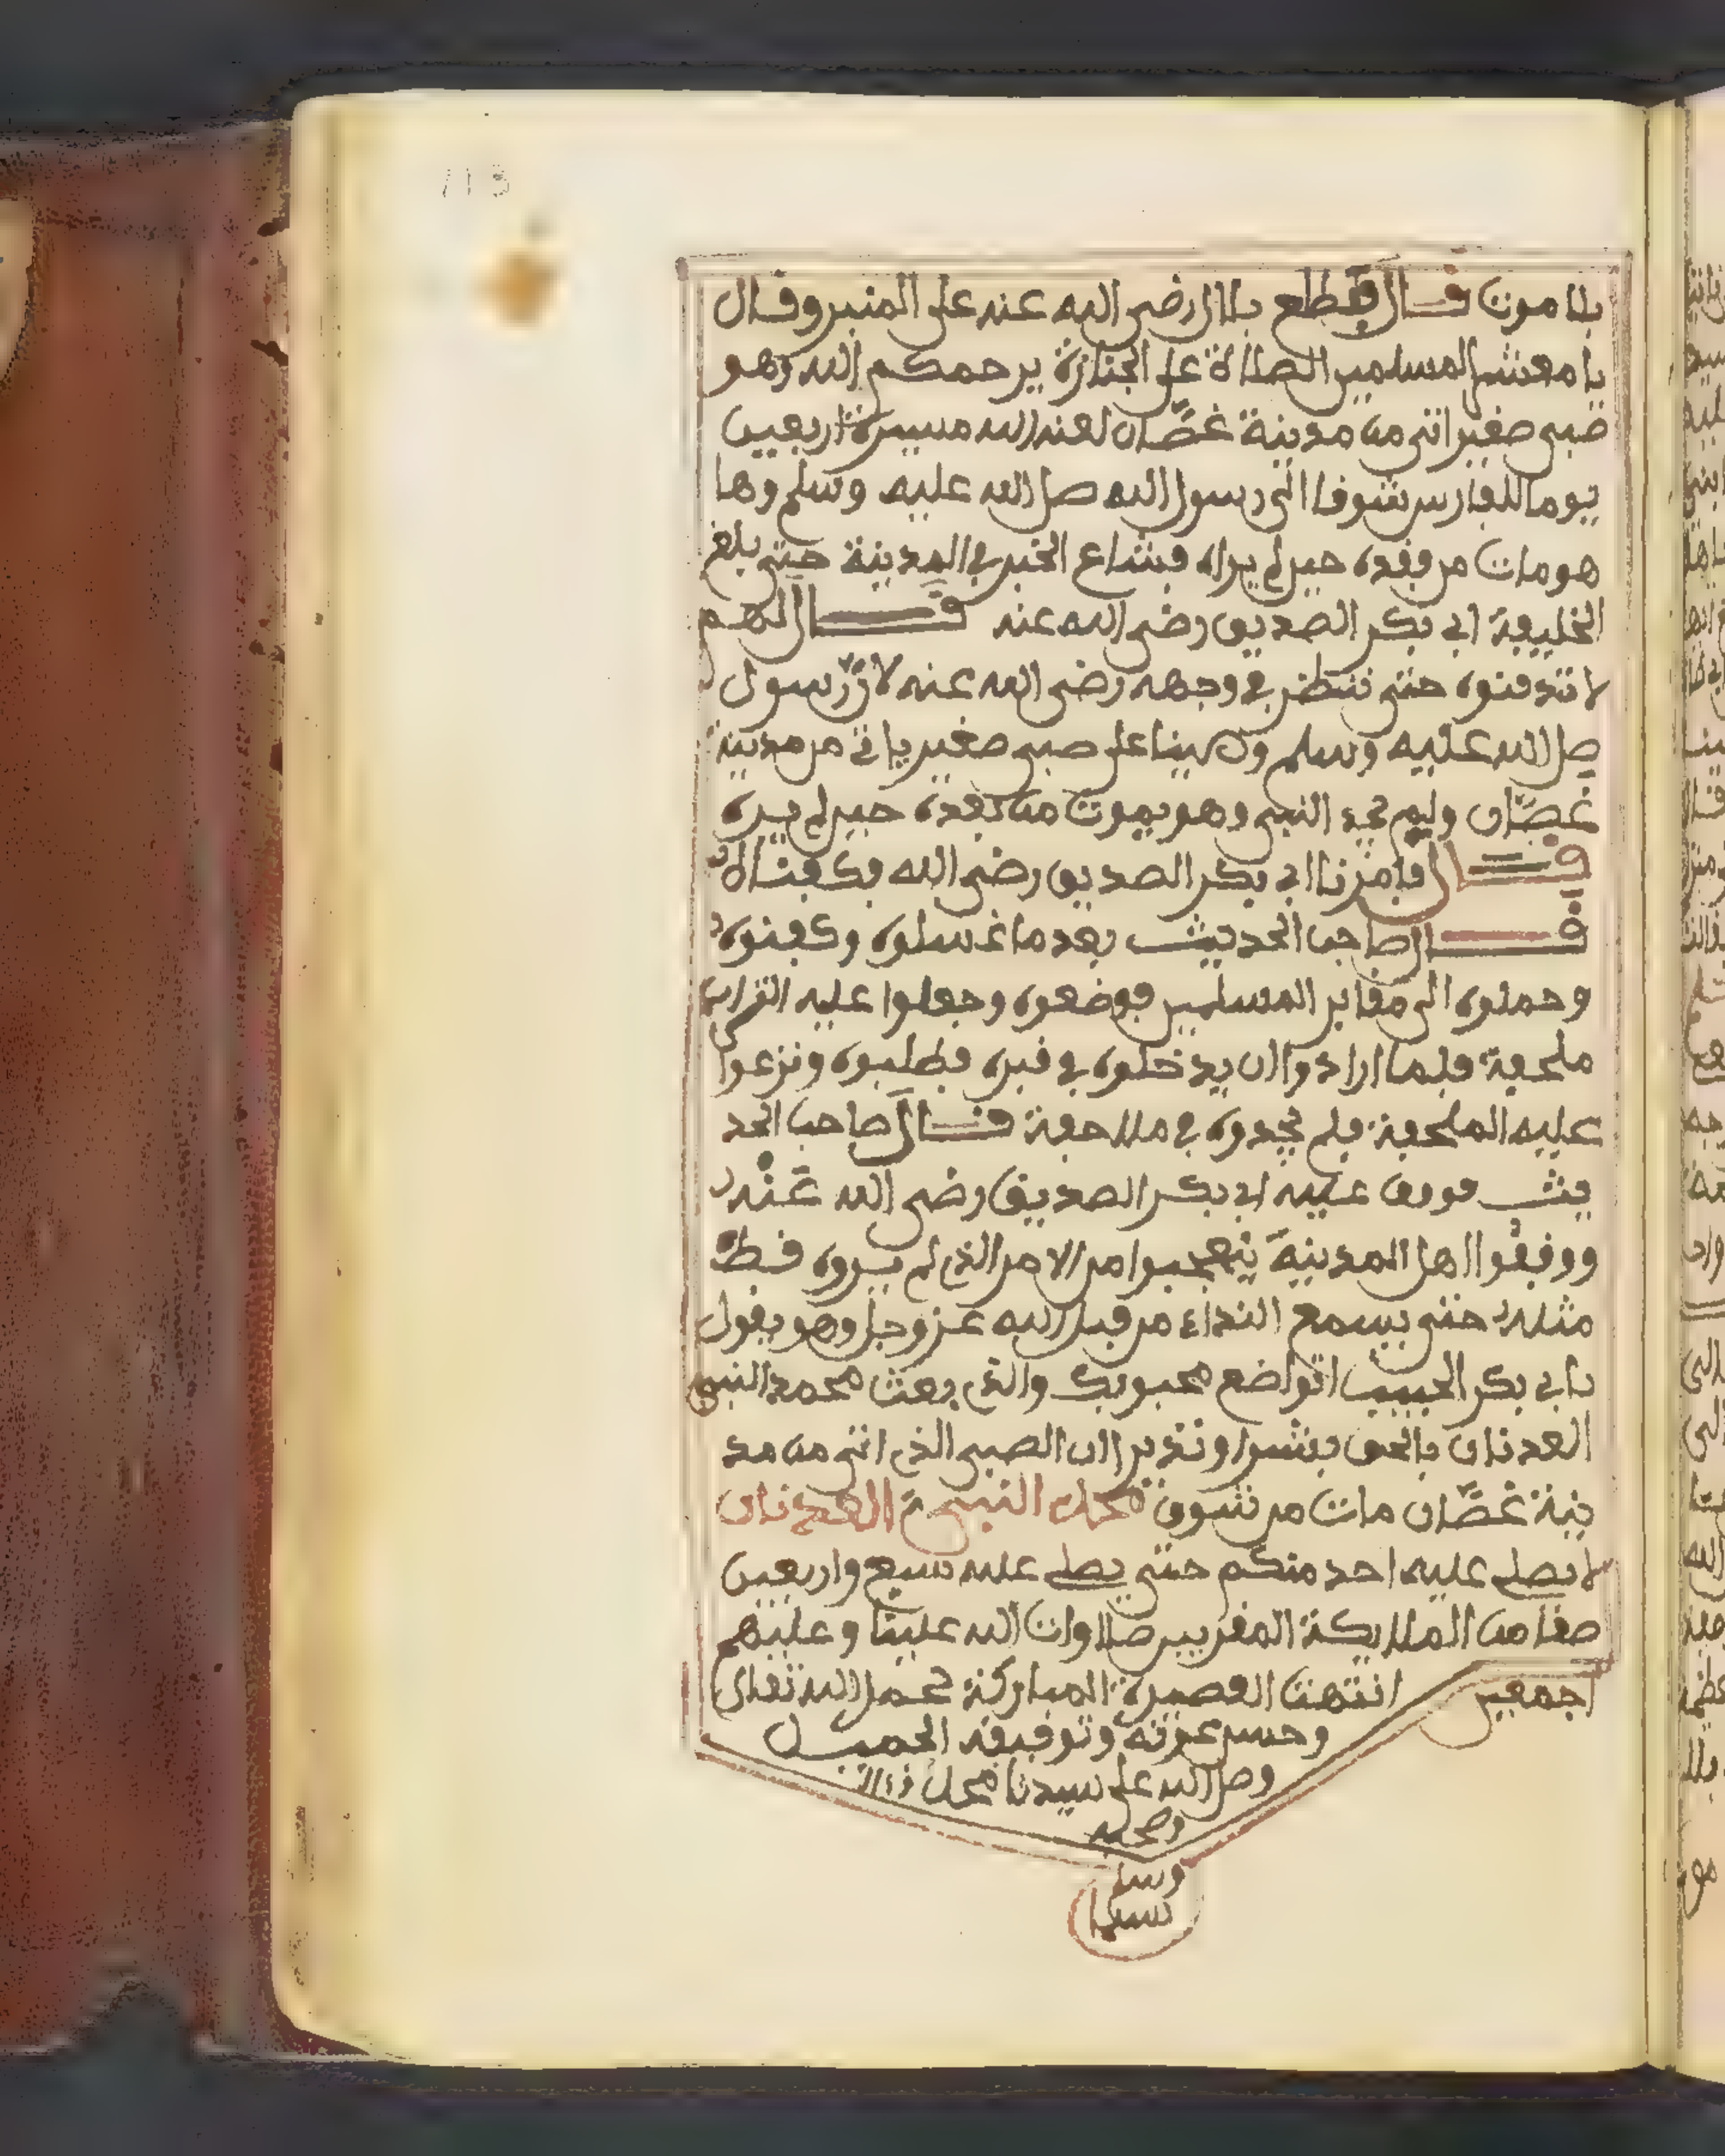 113
بلا موت قال فطلع بلال رضي الله عنه على المنبر وقال
يا معشر المسلمين الصلاة على الجنازة يرحمكم الله وهو
صبي صغير اتى من مدينة غصّان لعنه الله مسيرة اربعين
يوما للفارس شوفا الى رسول الله صلى الله عليه وسلم وها
هو مات من فقده حين لم يراه فشاع الخبر في المدينة حتى بلغ
الخليفة ابي بكر الصديق رضي الله عنه قال لهم
لا تدفنوه حتى ننظر في وجهه رضي الله عنه لان رسول
صل الله عليه وسلم صبي صغير ياتي من مدينة
غصّان ولم يجد النبي وهو يموت من فقده حين لم يره
قال فامرنا ابي بكر الصديق رضي الله فكفناه
قال صاحب الحديث بعد ما غسلوه وكفنوه
وحملوه الى مقابر المسلمين فوضعوه وجعلوا عليه
ملحفة فلما ارادوا ان يدخلوه في قبره فطلبوه ونزعوا
عليه الملحفة فلم يجدوه في ملاحفة قال صاحب الحد
يث فوقف عليه ابي بكر الصديق رضي الله عنه
ووقفوا اهل المدينة يتعجبوا من الامر الذي لم يروه قط
مثله حتى يسمع النداء من قبل الله عز وجل وهو يقول
يابي بكر الحبيب اتواضع محبوبك والذي بعث محمد النبي
العدنان بالحق بشيرا ونذيرا ان الصبي الذي اتى من مد
ينة غصّان مات من شوق محمد النبي العدنان
لا يصلي عليه احد منكم حتى يصلي عليه سبع واربعين
صفا من الملايكة المقربين صلاوات الله علينا وعليهم
اجمعين انتهت القصيرة المباركة بحمد الله تعالى
وحسن عونه وتوفيقه الجميل
وصل الله على سيدنا محمد
وصحبه
وسلم